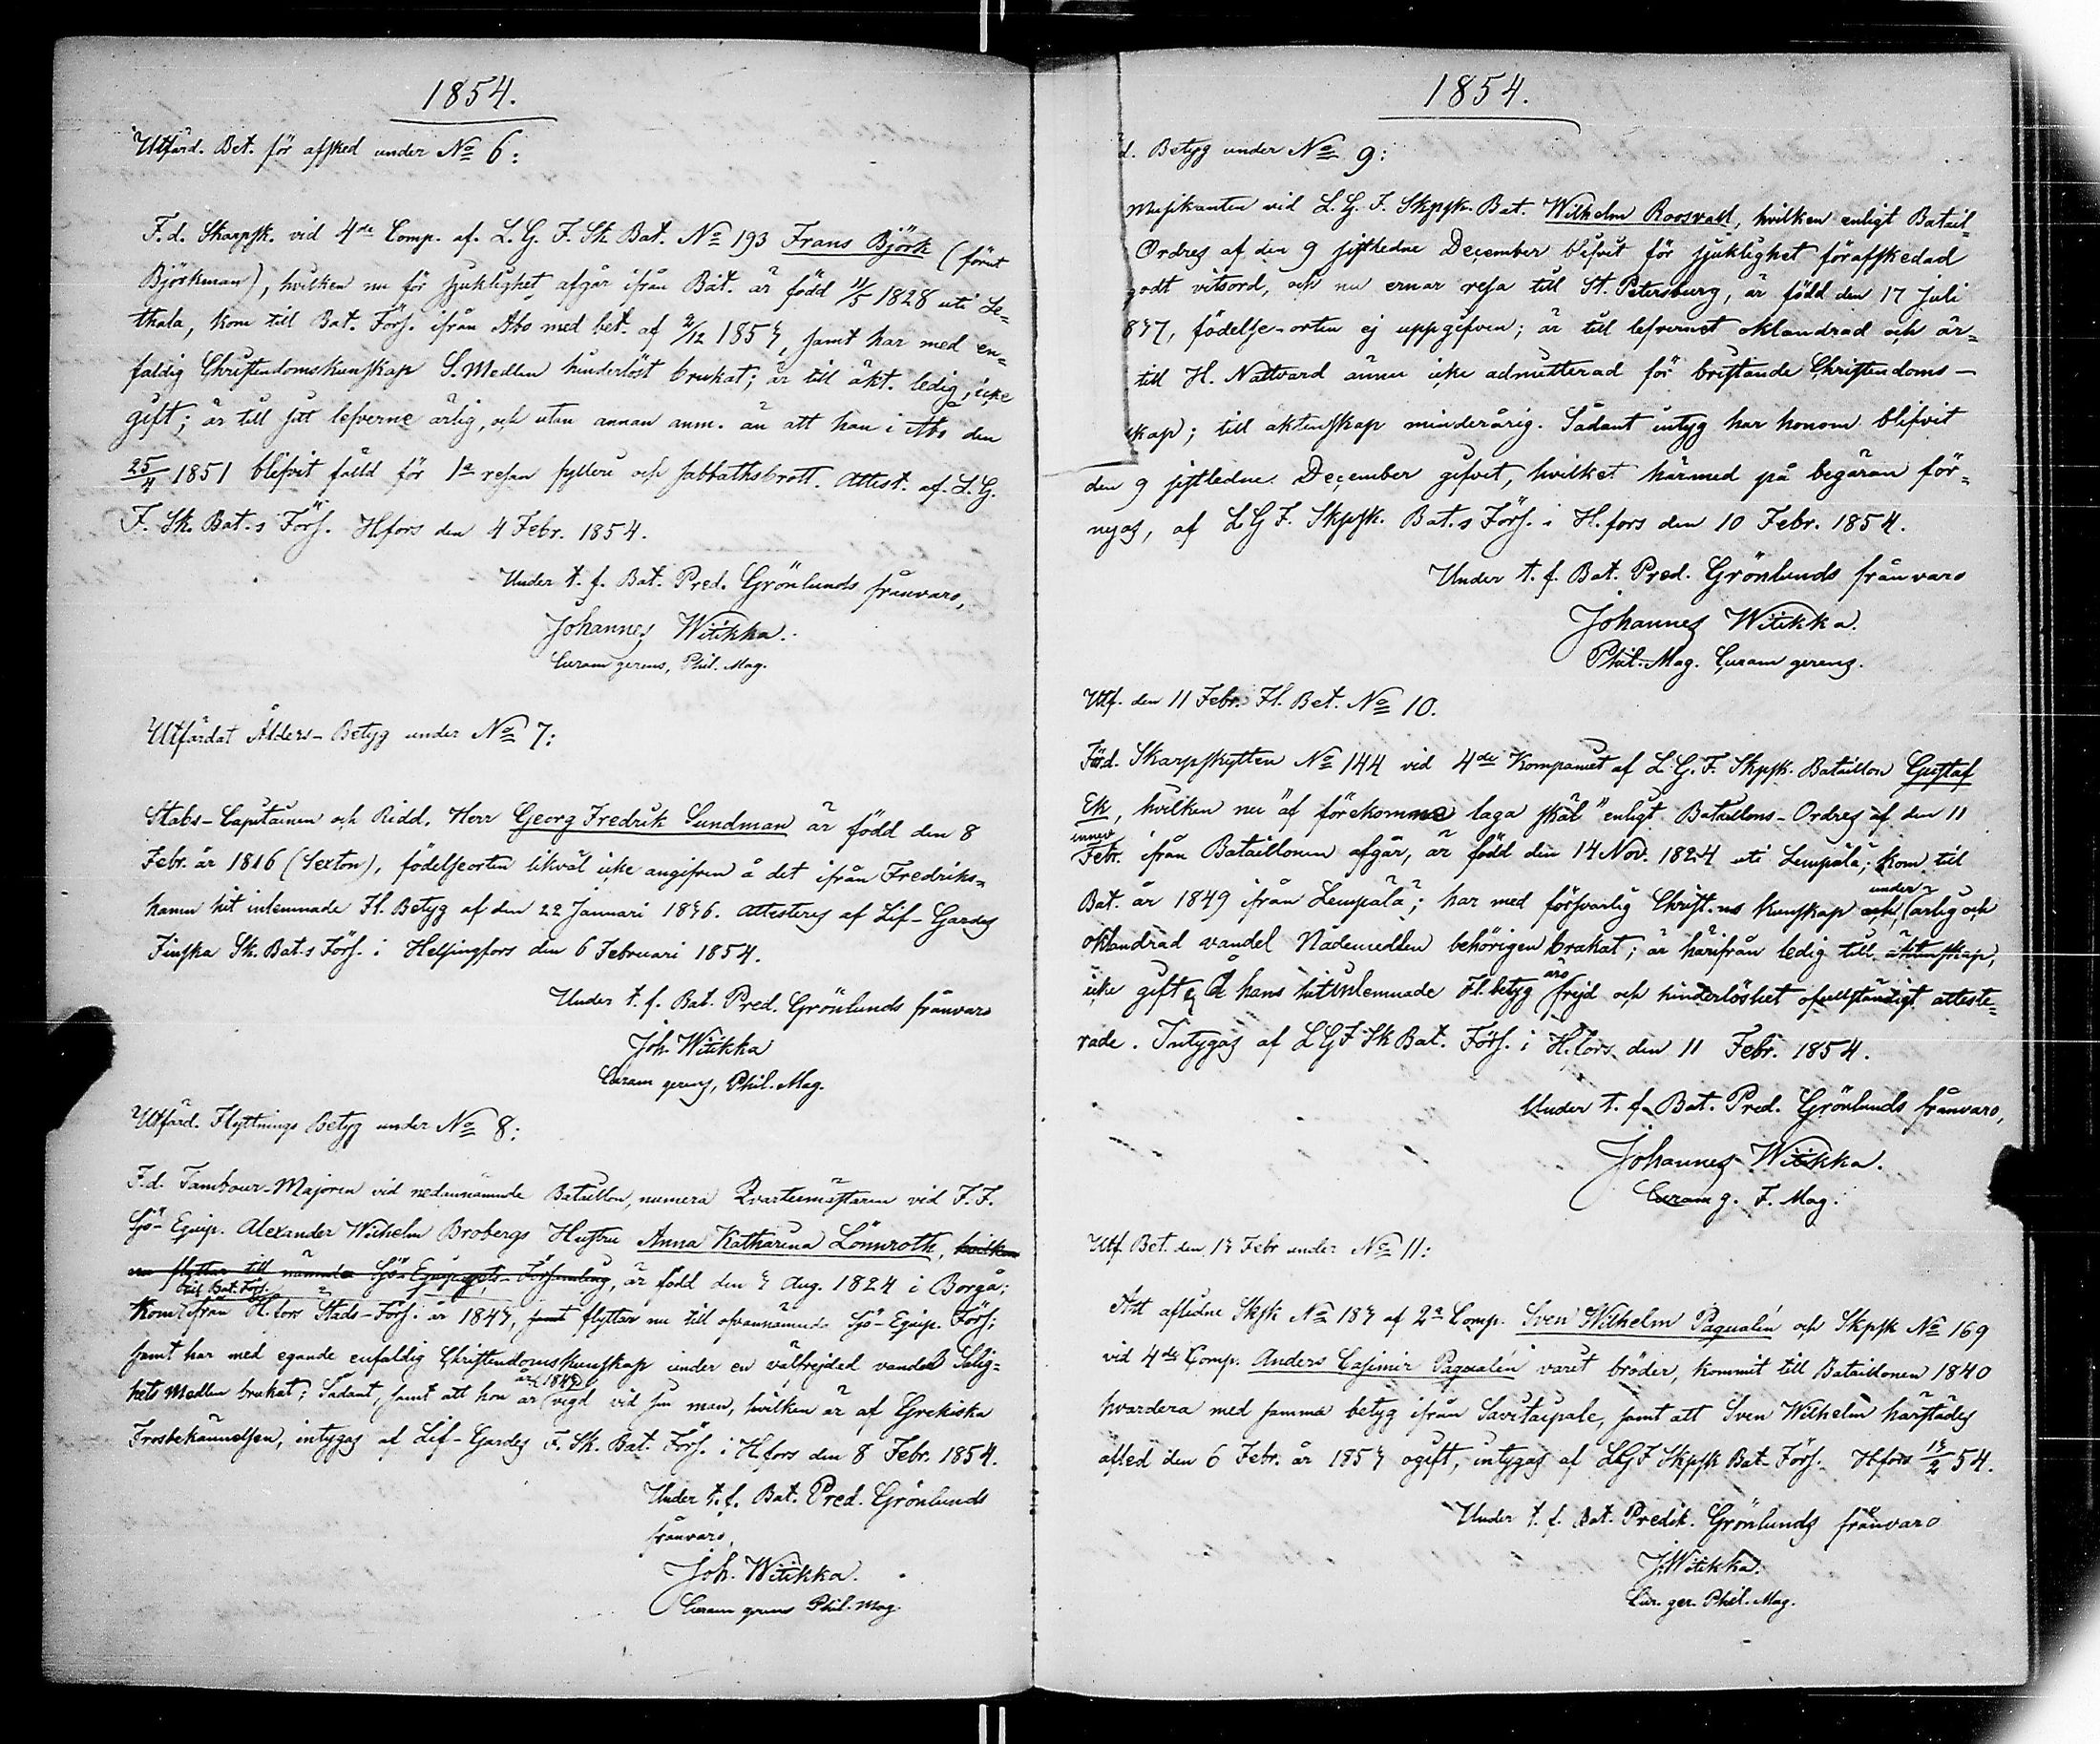 1854.
Utfärd. Bet. för afsked under No 6:
F.d. Skarpsk. vid 4de Comp. af. L. G. F. Sk. Bat. No 193 Frans Björk (förut
Björkman), hvilken nu för sjuklighet afgår ifrån Bat. är född 11/5 1828 uti Le=
thala, kom till Bat. Förs. ifrån Åbo med bet. af 1853, samt har med en=
faldig Christendomskunskap S. Medlen hinderlöst brukat; är till äkt. ledig, icke
gift; är till sitt lefverne ärlig, och utan annan anm. än att han i Åbo den
25/4 1851 blifvit fälld för 1a resan fylleri och sabbathsbrott. Attest. af. L. G.
F. Sk. Bat.s Förs. Hfors den 4 Febr. 1854.
Under t. f. Bat. Pred. Grönlunds frånvaro,
Johannes Witikka.
Curam gerens, Phil. Mag.
Utfärdat Ålders-Betyg under No 7:
Stabs-Capitainen och Ridd. Herr Georg Fredrik Sundman är född den 8
Febr. år 1816 (Sexton), födelseorten likväl icke angifven å det ifrån Fredriks=
hamn hit inlemnade Fl. Betyg af den 22 Januari 1836. Attesteras af Lif-Gardes
Finska Sk. Bat.s Förs. i Helsingfors den 6 Februari 1854.
Under t. f. Bat. Pred. Grönlunds frånvaro
Joh. Witikka
Curam gerens, Phil. Mag.
Utfärd. Flyttnings Betyg under No 8:
F.d. Tambour-Majoren vid nedannämnde Bataillon, numera Qvartermästaren vid F. F.
Sjö-Equip. Alexander Wilhelm Brobergs Hustru Anna Katharina Lönnroth, hvilken
nu flyttar till nämnda Sjö-Equipagets-Församling, är född den 3 Aug. 1824 i Borgå;
till Bat. Förs.
kom ifrån H.fors Stads-Förs. år 1843, samt flyttar nu till ofvannämnde Sjö-Equip. Förs;
samt har med egande enfaldig Christendomskunskap under en välfrejdad vandel Salig=
år 1843
hets Medlen brukat; Sådant, samt att hon är vigd vid sin man, hvilken är af Grekiska
Trosbekännelsen, intygas af Lif-Gardes F. Sk. Bat. Förs. i Hfors den 8 Febr. 1854.
Under t. f. Bat. Pred. Grönlunds
frånvaro,
Joh. Witikka.
Curam gerens Phil. Mag.
1854.
d. Betyg under No 9:
Musikanten vid L. G. F. Skpsk. Bat. Wilhelm Roosvall, hvilken enligt Batail=
Ordres af den 9 sistledne December blifvit för sjuklighet förafskedad
godt vitsord, och nu ernar resa till St. Petersburg, är född den 17 Juli
837, födelse-orten ej uppgifven; är till lefvernet oklandrad och är=
till H. Nattvard ännu icke admitterad för bristande Christendoms-
skap; till äktenskap minderårig. Sådant intyg har honom blifvit
den 9 sistledne December gifvet, hvilket härmed på begäran för=
nyas, af L G F. Skpsk. Bat.s Förs. i H.fors den 10 Febr. 1854.
Under t. f. Bat. Pred. Grönlunds frånvaro
Johannes Witikka.
Phil. Mag. Curam gerens.
Utf. den 11 Febr. Fl. Bet. No 10.
F.d. Skarpskytten No 144 vid 4de Kompaniet af L. G. F. Skpsk. Bataillon Gustaf
Ek, hvilken nu "af förekomna laga skäl" enligt Bataillons-Ordres af den 11
innev.
Febr. ifrån Bataillonen afgår, är född den 14 Nov. 1824 uti Lempälä; kom till
under
Bat. år 1849 ifrån Lempälä; har med försvarlig Christ.ns kunskap och ärlig och
oklandrad vandel Nådemedlen behörigen brukat; är härifrån ledig till äktenskap,
äro
icke gift; å hans hitinlemnade Fl. betyg frejd och hinderlöshet ofullständigt atteste=
rade. Intygas af L G F Sk Bat. Förs. i H.fors den 11 Febr. 1854.
Under t. f. Bat. Pred. Grönlunds frånvaro,
Johannes Witikka.
Curam g. F. Mag.
Utf. Bet. den 13 Febr under No 11:
Att aflidne Skpsk No 183 af 2a Comp. Sven Wilhelm Paqualén och Skpsk No 169
vid 4de Comp. Anders Casimir Paqualén varit bröder, kommit till Bataillonen 1840
hvardera med samma betyg ifrån Savitaipale, samt att Sven Wilhelm härstädes
afled den 6 Febr. år 1853 ogift, intygas af L G F Skpsk Bat-Förs. Hfors 13/2 54.
Under t. f. Bat. Predik. Grönlunds frånvaro
J. Witikka.
Cur. ger. Phil. Mag.